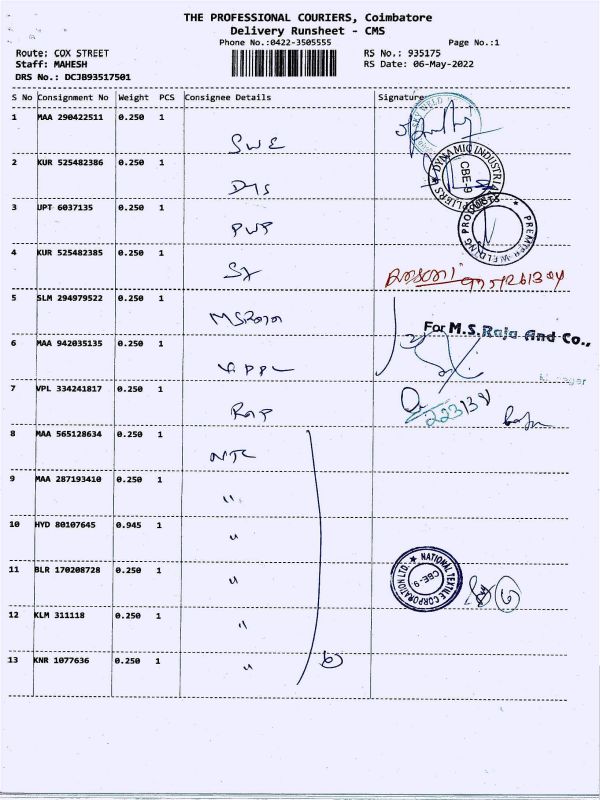 THE PROFESSIONAL COURIERS, Coimbatore
Delivery Runsheet - CMS
Phone No.:0422-3505555 Page No.:1
Route: COX STREET RS No.: 935175
Staff: MAHESH RS Date: 06-May-2022
DRS No.: DCJB93517501
S No Consignment No Weight PCS Consignee Details Signature
1 MAA 290422511 0.250 1 SWE
2 KUR 525482386 0.250 1 DIS
DYNAMIC INDUSTRIAL
CBE-9
3 UPT 6037135 0.250 1 PWP
PREMIER WELDING PRODUCTS
4 KUR 525482385 0.250 1
5 SLM 294979522 0.250 1 MSRaja
For M.S.Raja And Co.,
6 MAA 942035135 0.250 1
7 VPL 334241817 0.250 1
8 MAA 565128634 0.250 1 NTC
9 MAA 287193410 0.250 1 "
10 HYD 80107645 0.945 1 "
11 BLR 170208728 0.250 1 "
NATIONAL TEXTILE CORPORATION LTD.
CBE-9
12 KLM 311118 0.250 1 "
13 KNR 1077636 0.250 1 " 6